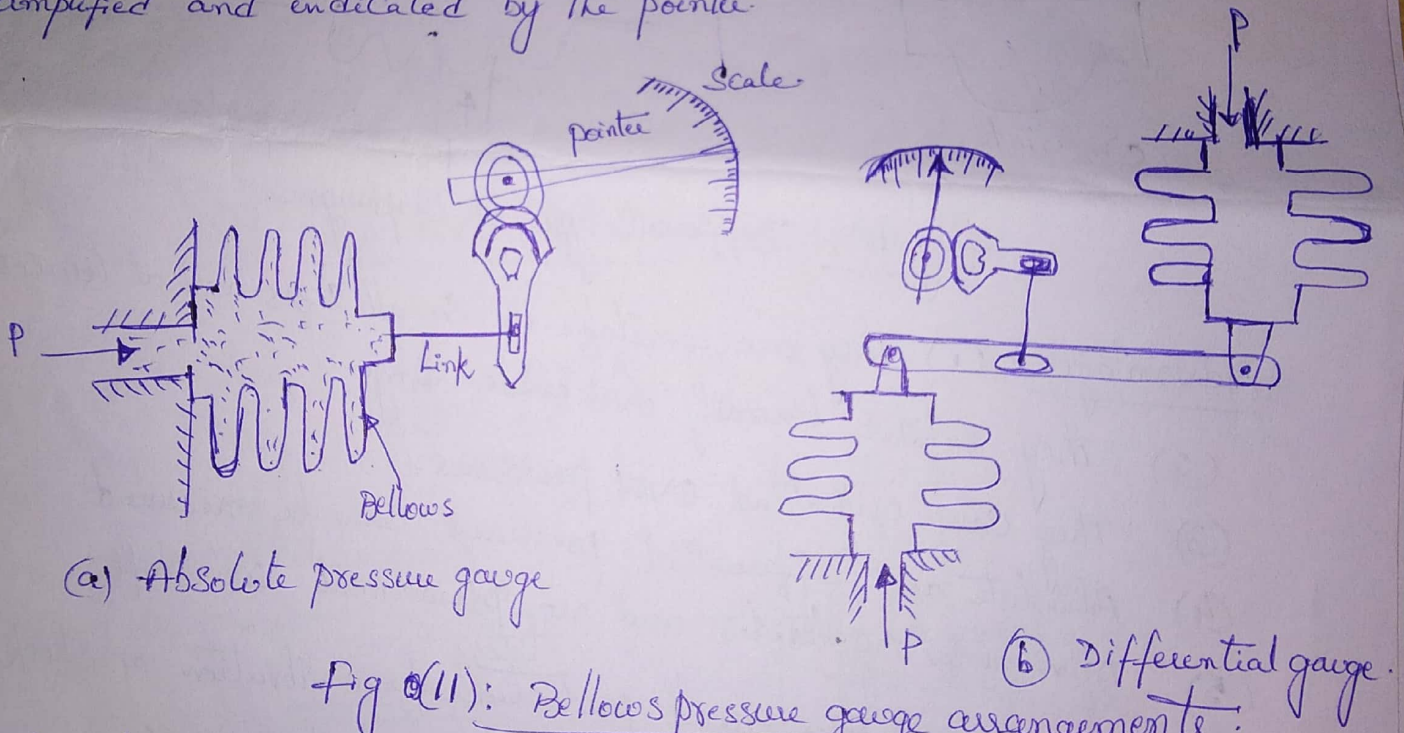 amplified and indicated by the pointer.
Scale.
pointer
P
Link
Bellows
(a) Absolute pressure gauge
P
P
(b) Differential gauge.
Fig (11): Bellows pressure gauge arrangements.